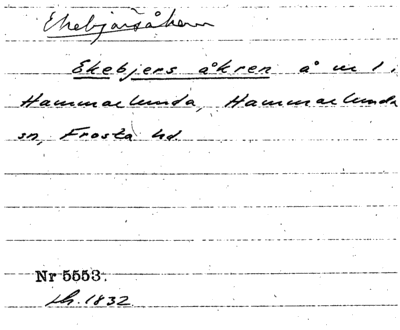 Ekebjärsåkern
Ekebjers åkren å nr 1,
Hammarlunda, Hammarlunda
sn, Frosta hd.
Nr 5553.
Lh. 1832